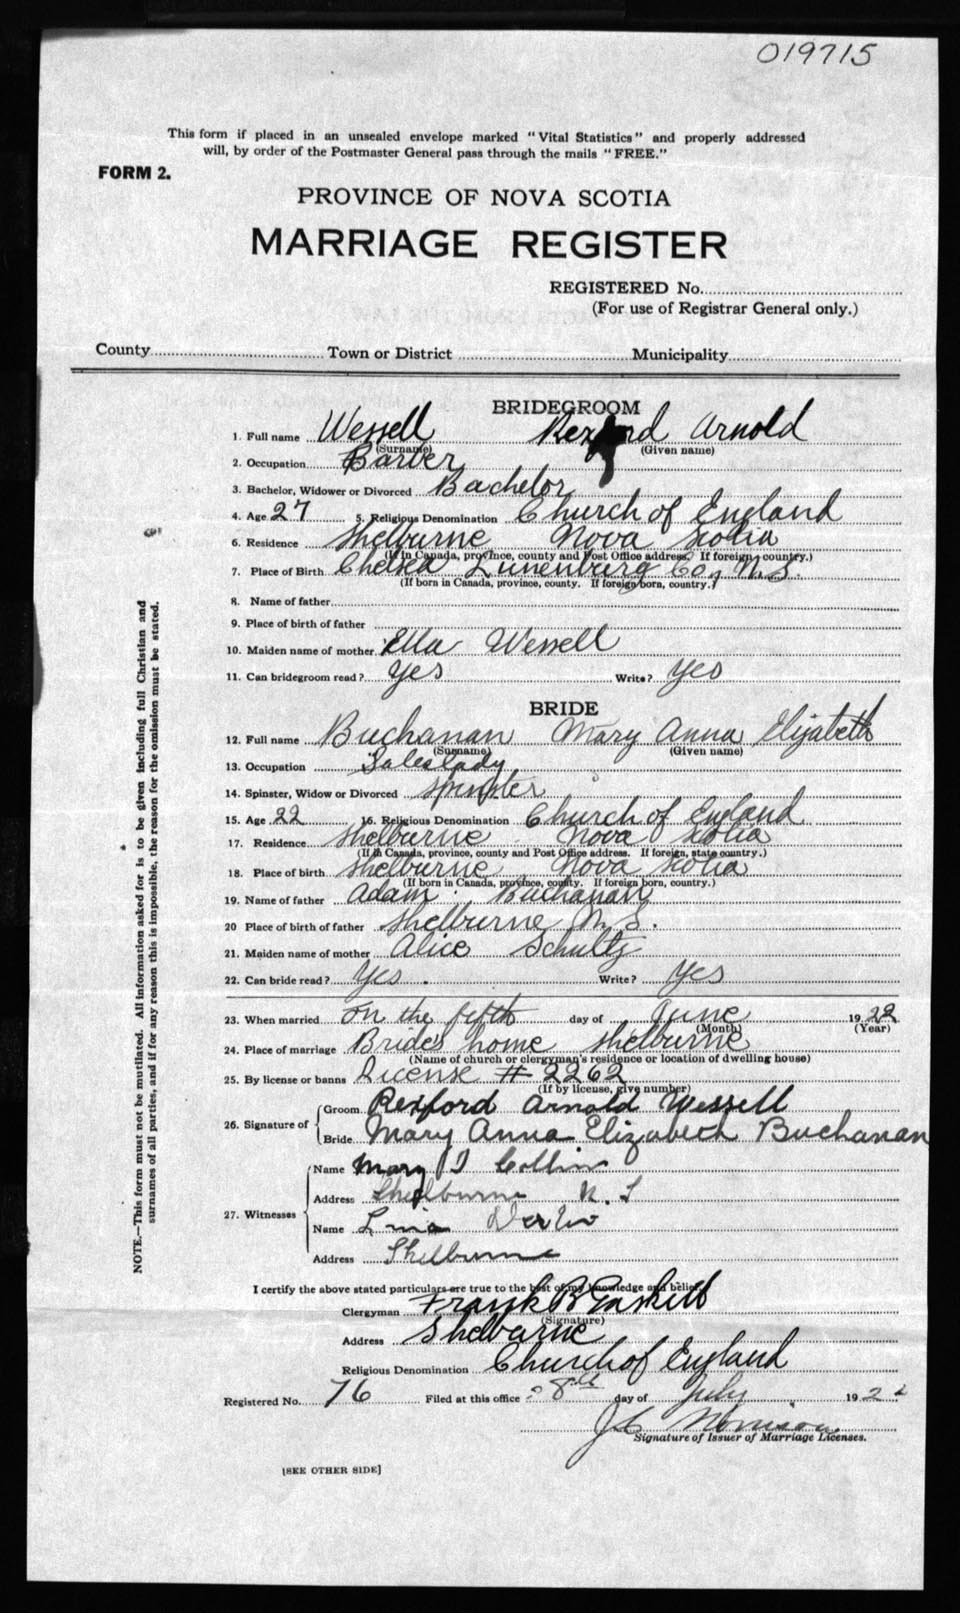 019715
This form if placed in an unsealed envelope marked "Vital Statistics" and properly addressed
will, by order of the Postmaster General pass through the mails "FREE."
FORM 2.
PROVINCE OF NOVA SCOTIA
MARRIAGE REGISTER
REGISTERED No.
(For use of Registrar General only.)
County Town or District Municipality
BRIDEGROOM
1. Full name Wessell Rexford Arnold
(Surname) (Given name)
2. Occupation Barber
3. Bachelor, Widower or Divorced Bachelor
4. Age 27 5. Religious Denomination Church of England
6. Residence Shelburne Nova Scotia
(If in Canada, province, county and Post Office address. If foreign, country.)
7. Place of Birth Chelsea Lunenburg Co, N.S.
(If born in Canada, province, county. If foreign born, country.)
8. Name of father
9. Place of birth of father
10. Maiden name of mother Ella Wessell
11. Can bridegroom read? Yes Write? Yes
BRIDE
12. Full name Buchanan Mary Anna Elizabeth
(Surname) (Given name)
13. Occupation Saleslady
14. Spinster, Widow or Divorced Spinster
15. Age 22 16. Religious Denomination Church of England
17. Residence Shelburne Nova Scotia
(If in Canada, province, county and Post Office address. If foreign, state country.)
18. Place of birth Shelburne Nova Scotia
(If born in Canada, province, county. If foreign born, country.)
19. Name of father Adam Buchanan
20 Place of birth of father Shelburne N.S.
21. Maiden name of mother Alice Schultz
22. Can bride read? Yes. Write? Yes
23. When married on the fifth day of June 1922
(Month) (Year)
24. Place of marriage Brides home Shelburne
(Name of church or clergyman's residence or location of dwelling house)
25. By license or banns License # 2262
(If by license, give number)
26. Signature of Groom Rexford Arnold Wessell
Bride Mary Anna Elizabeth Buchanan
27. Witnesses
Name Mary Collin
Address Shelburne N.S
Name
Address Shelburne
I certify the above stated particulars are true to the best of my knowledge and belief.
Clergyman Frank B Gaskill
(Signature)
Address Shelburne
Religious Denomination Church of England
Registered No. 76 Filed at this office 8th day of July 192
J C Morrison
Signature of Issuer of Marriage Licenses.
[SEE OTHER SIDE]
NOTE.—This form must not be mutilated. All information asked for is to be given including full Christian and
surnames of all parties, and if for any reason this is impossible, the reason for the omission must be stated.